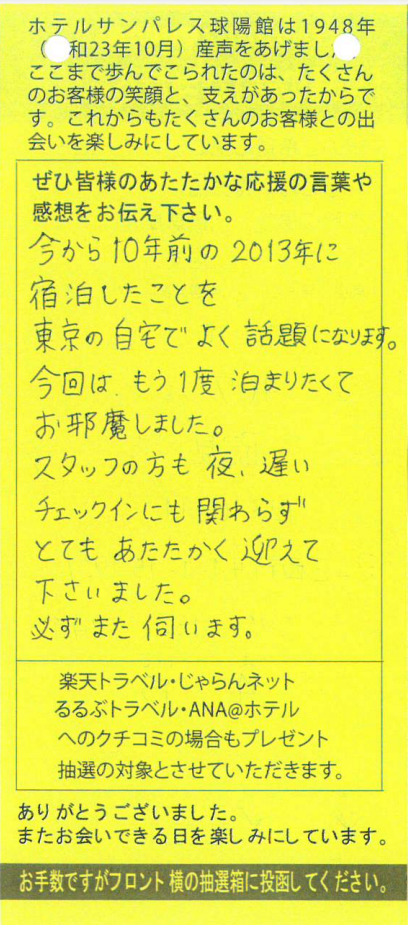 ホテルサンパレス球陽館は1948年
(和23年10月)産声をあげました
ここまで歩んでこられたのは、たくさん
のお客様の笑顔と、支えがあったからで
す。これからもたくさんのお客様との出
会いを楽しみにしています。
ぜひ皆様のあたたかな応援の言葉や
感想をお伝え下さい。
今から10年前の2013年に
宿泊したことを
東京の自宅でよく話題になります。
今回は、もう1度泊まりたくて
お邪魔しました。
スタッフの方も夜、遅い
チェックインにも関わらず
とてもあたたかく迎えて
下さいました。
必ずまた伺います。
楽天トラベル・じゃらんネット
るるぶトラベル・ANA@ホテル
へのクチコミの場合もプレゼント
抽選の対象とさせていただきます。
ありがとうございました。
またお会いできる日を楽しみにしています。
お手数ですがフロント横の抽選箱に投函してください。